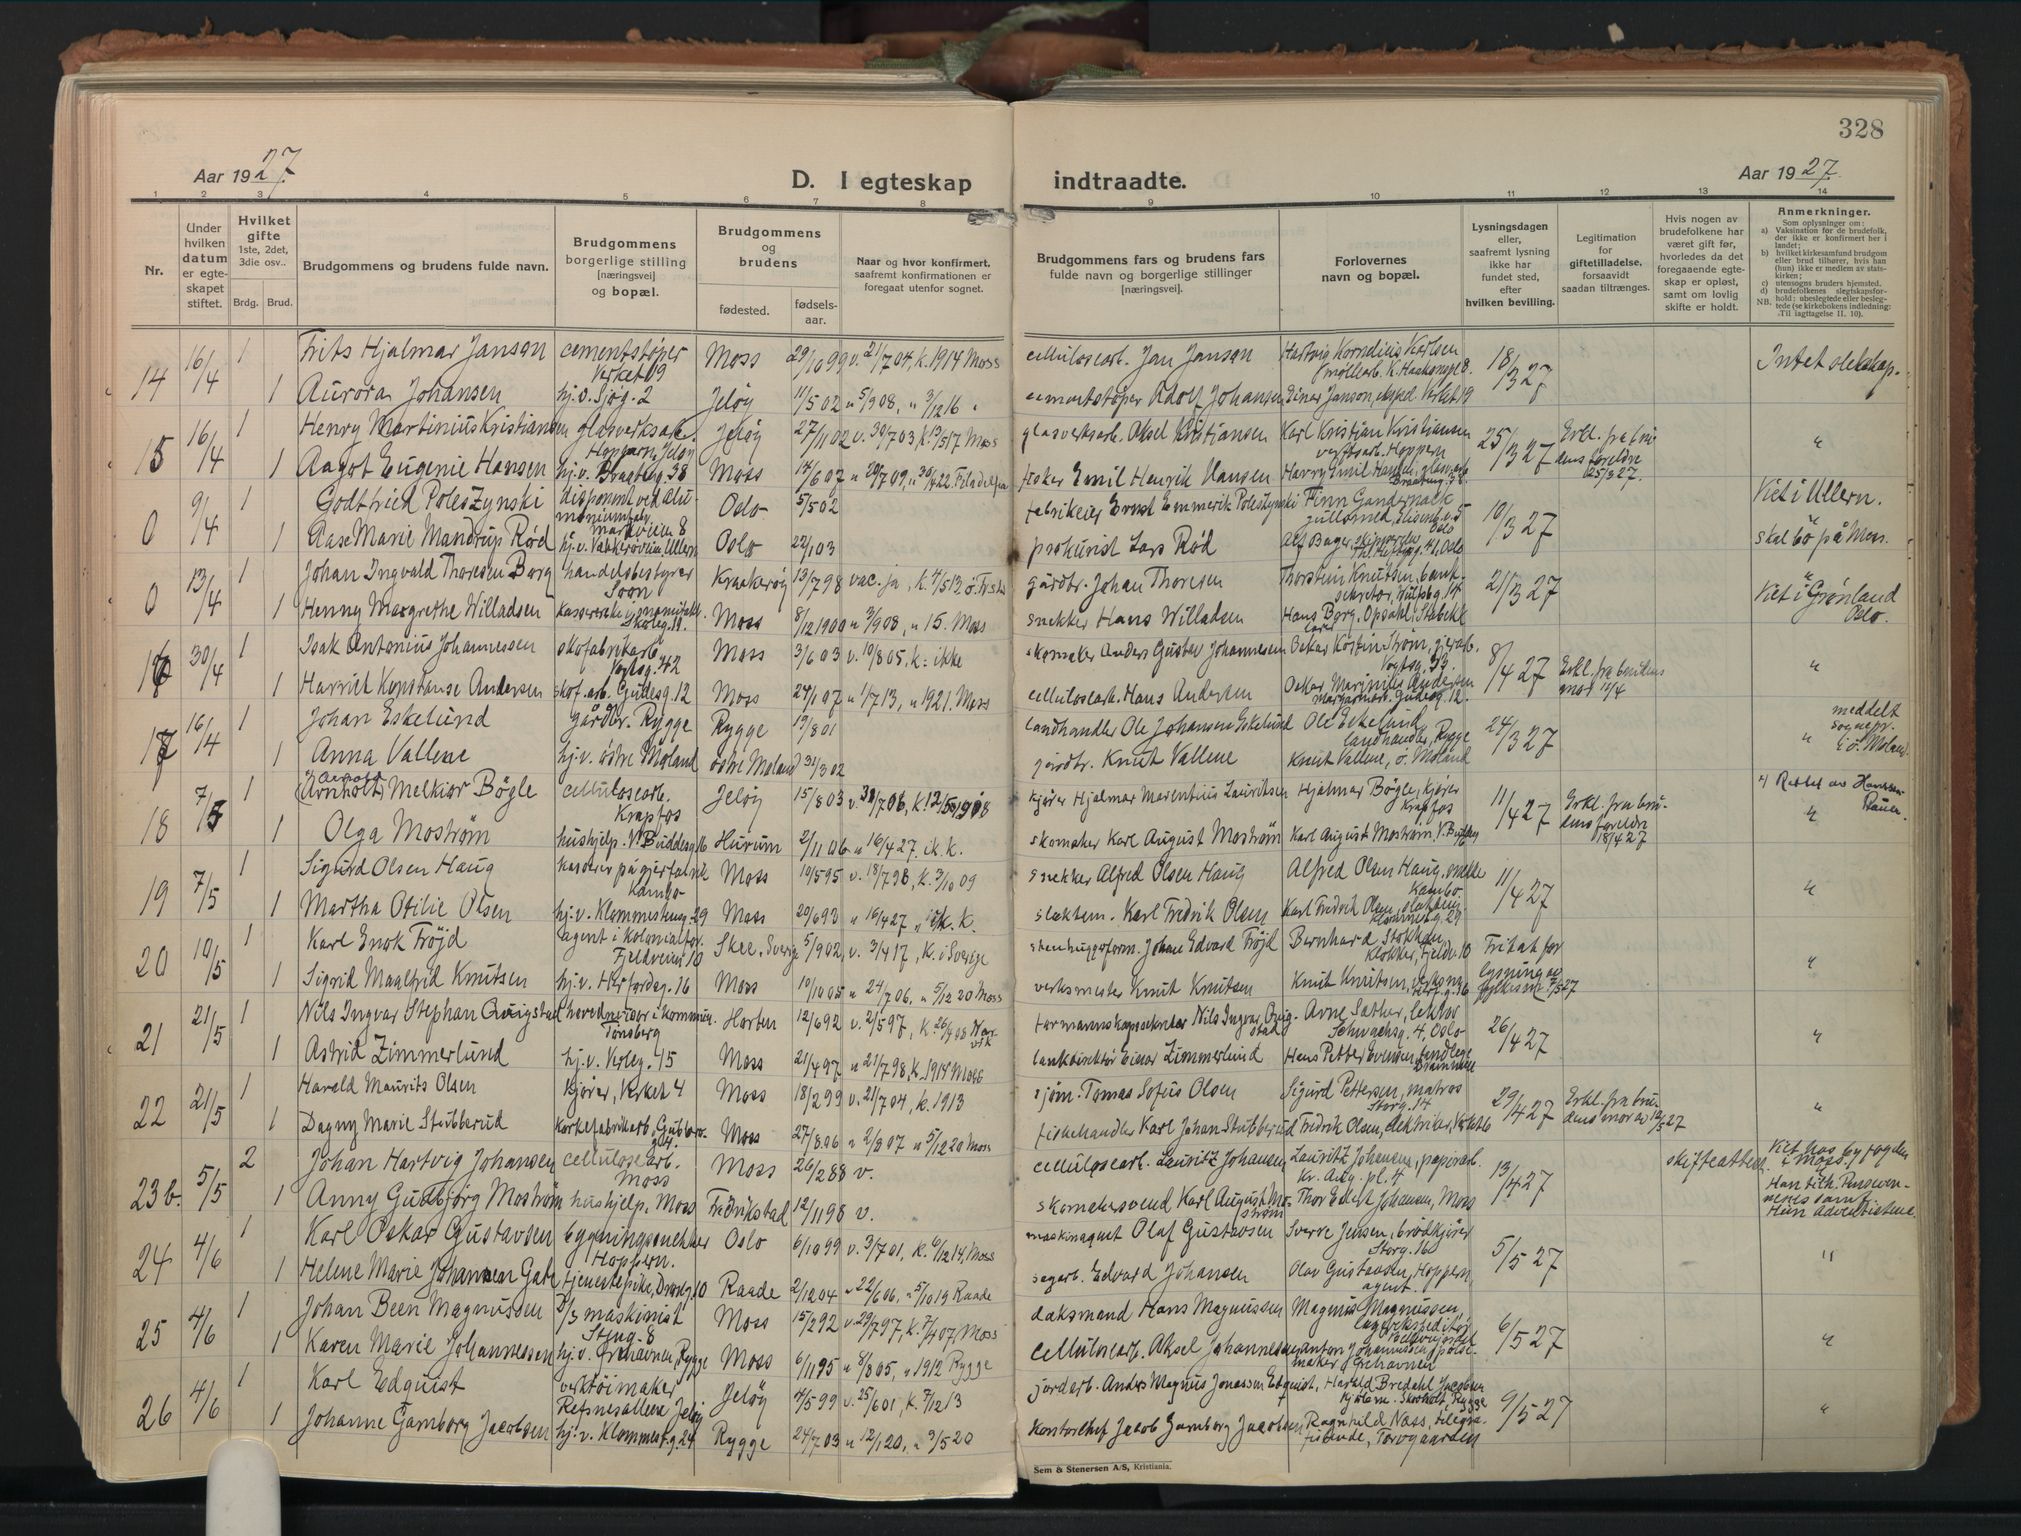 328
Aar 1927.
D. I egteskap indtraadte.
Aar 1927.
1 2 3 4 5 6 7 8 9 10 11 12 13 14
Nr.
Under hvilken datum er egteskapet stiftet.
Hvilket gifte 1ste, 2det, 3die osv..
Brdg. Brud.
Brudgommens og brudens fulde navn.
Brudgommens borgerlige stilling [næringsvei] og bopæl.
Brudgommens og brudens
fødested. fødselsaar.
Naar og hvor konfirmert. saafremt konfirmationen er foregaat utenfor sognet.
Brudgommens fars og brudens fars fulde navn og borgerlige stillinger [næringsvei].
Forlovernes navn og bopæl.
Lysningsdagen eller, saafremt lysning ikke har fundet sted, efter hvilken bevilling.
Legitimation for giftetilladelse, forsaavidt saadan tiltrænges.
Hvis nogen av brudefolkene har været gift før, hvorledes da det foregaaende egteskap er opløst, samt om lovlig skifte er holdt.
Anmerkninger.
Som oplysninger om:
a) Vaksination før de brudefolk, der ikke er konfirmert her i landet;
b) hvilket kirkesamfund brudgom eller brud tilhører, hvis han (hun) ikke er medlem av statskirken;
c) utensogns bruders hjemsted.
d) brudefolkenes slegtskapsforhold: ubeslegtede eller beslegtede (se kirkebokens indledning:
NB. Til iagttagelse II. 10).
14 16/4 1 Frits Hjalmar Janson cementstøper Verket 19 Moss 29/10 99 v. 21/7 04, k. 1914 Moss cellulosearb. Jan Janson Hartvig Kornelius Karlsen møllearb. K. Haakonspl 8. 18/3 27 Intet slektskap.
1 Aurora Johansen hj. v. Sjøg. 2 Jeløy 11/5 02 " 5/9 08, " 3/12 16 " cementstøper Adolf Johansen Einar Janson, eksped. Verket 19
15 16/4 1 Henry Martinius Kristiansen glasverksarb. Hoppern, Jeløy Jeløy 27/11 02 v. 30/7 03 k. 13/5 17 Moss glasverksarb. Aksel Kristiansen Karl Kristian Kristiansen verftsarb. Hoppern 25/3 27 Erkl. fra brudens foreldre 25/3 27. "
1 Aagot Eugenie Hansen hj. v. Bragteg. 38 Moss 14/6 07 " 20/7 09, " 30/4 22 fisker Emil Henrik Hansen Harry Emil Hansen, glasv. arb.
0 9/4 1 Godtfried Poleszynski disponent ved aluminiumfabr. Oslo 5/5 02 fabrikeier Ernst Emmerik Poleszynski Finn Gundersack gullsmed, 10/3 27 Viet i Ullern.
1 Aase Marie Mandrup Rød hj. v. Vækkerøveien Ullern Oslo 22/1 03 prokurist Lars Rød Alf Bager, Oslo skal bo på Moss.
0 13/4 1 Johan Ingvald Thoresen Borg handelsbestyrer Soon Kraakerøy 13/7 98 vac. ja, k. 4/5 13, ø. Fr.stad gårdbr. Johan Thoresen Thorstein Knutsen, banksekretær, 21/3 27 Viet i Grønland Oslo.
1 Henny Margrethe Willadsen kassererske i manufakt. Skoleg. 19. Moss 8/12 1900 " 3/9 08, " 15. Moss snekker Hans Willadsen Hans Borg, Opsahl, Stabekk
16 30/4 1 Isak Antonius Johannessen skofabrikarb. Vogtsg. 42 Moss 3/6 03 v. 10/8 05, k: ikke skomaker Anders Gustav Johannesen Oskar Kostin Strøm, Vogtsg. 8/4 27 Erkl. fra brudens mor 12/4 "
1 Harriet Konstanse Andersen skof. arb. Gudesg. 12 Moss 24/1 07 " 1/7 13, " 1921. Moss cellulosearb. Hans Andersen Oskar Marinius Andersen margarinarb. Gudesg. 12.
17 16/4 1 Johan Eskelund gårdbr. Rygge Rygge 19/8 01 landhandler Ole Johansen Eskelund Ole Eskelund landhandler, Rygge 24/3 27 " meddelt sognepr. i ø. Moland.
1 Anna Vallene hj. v. østre Moland østre Moland 31/3 02 gårdbr. Knut Vallene Knut Vallene, ø. Moland
18 7/5 1 (Arnholt) Arnold Melkior Bøgle cellulosearb. Krapfos Jeløy 15/8 03 v. 7 06, k. 12/5 1918 kjører Hjalmar Marentius Lauritsen Hjalmar Bøgle, kjører Krapfos 11/4 27 Erkl. fra brudens foreldre 18/4 27 "
1 Olga Mostrøm hushjelp. V. Buddesg. 16 Hurum 2/11 06 " 16/4 27. ik. k. skomaker Karl August Mostrøm Karl August Mostrøm,
19 7/5 1 Sigurd Olsen Haug kasserer på gjærfabrik Kambo Moss 10/5 95 v. 18/7 98, k. 3/10 09 snekker Alfred Olsen Haug Alfred Olsen Haug, snekker Kambo 11/4 27 "
1 Martha Otilie Olsen hj. v. Klommesteng. 29 Moss 20/6 93 " 16/4 27 " ik. k. slaktem. Karl Fredrik Olsen Karl Fredrik Olsen, slakterm. Klommestg. 29
20 10/5 1 Karl Enok Frøjd agent i kolonialfor. Fjeldveien 10 Skee, Sverige 5/9 02, v. 3/4 17, k. i Sverige stenhuggerform. Johan Edvard Frøjd Bernhard Stokken, klokker, Fjeldv. 10 Fritat for lysning av fylkesm. 7/5 27 "
1 Sigrid Maalfrid Knutsen hj. v. Herfordsg. 16 Moss 10/10 05 " 24/7 06, " 5/12 20 Moss verksmester Knut Knutsen Knut Knutsen,
21 21/5 1 Nils Ingvar Stephan Quigstad Tønsberg Horten 12/6 92 v. 2/5 97, k. 26/9 08 Narvik formannskapssekretær Nils Ingvar Quigstad Arne Sæther, lektor Schwachsg. 4, Oslo 26/4 27 "
1 Astrid Zimmerlund hj. v. Kirkeg. 15 Moss 21/4 97 " 21/7 98, k. 1914 Moss bankdirektør Einar Zimmerlund Hans Petter Evensen, tandlege Drammen
22 21/5 1 Harald Maurits Olsen kjører, Verket 4 Moss 18/2 99 v. 21/7 04, k. 1913 sjøm. Tomas Sofus Olsen Sigurd Pettersen, matros Storg. 14 29/4 27 Erkl. fra brudens mor av 12/5 27 "
1 Dagny Marie Stubberud korkefabrikarb, Moss 27/8 06 " 2/8 07 " 5/12 20 Moss fiskehandler Karl Johan Stubberud Fredrik Olsen, elektriker, Verket 6
23 b. 5/5 2 Johan Hartvig Johansen cellulosearb. Moss Moss 26/2 88 v. cellulosearb. Lauritz Johansen Lauritz Johansen, papirarb. Kr. Aug. pl. 4 13/4 27 skifteattest. Viet hos byfogden i Moss.
1 Anny Gudbjørg Mostrøm hushjelp, Moss Fredrikstad 12/11 98 v. skomakersvend Karl August Mostrøm Thor Edvart Johansen, Moss Hun Adventistene.
24 4/6 1 Karl Oskar Gustavsen bygningssnekker Hoppern. Oslo 6/10 99 v. 3/7 01, k. 6/12 14, Moss maskinagent Olaf Gustavsen Sverre Jensen, brødkjører Storg. 16 5/5 27 "
1 Helene Marie Johansen Gate tjenestepike, 10 Raade 2/12 04 " 22/6 06, " 5/10 19 Raade sagarb. Edvard Johansen Olav Gustavsen, Hoppern, agent.
25 4/6 1 Johan Been Magnussen D/S maskinist Steng. 8 Moss 15/2 92 v. 29/7 97, k. 7/4 07, Moss dæksmand Hans Magnussen Magnus Magnussen, 6/5 27 "
1 Karen Marie Johannessen hj. v. Rygge Moss 6/11 95 " 8/8 05, " 1912 Rygge cellulosearb. Aksel Johannesen Anton Johannessen, pølsemaker
26 4/6 1 Karl Edquist verktøimaker, Refsnesalleen, Jeløy Jeløy 4/5 99 v. 25/6 01, k. 7/12 13 jordarb. Anders Magnus Jonassen Edquist, Harald Bredahl Jacobsen Rygge 9/5 27 "
1 Johanne Gamborg Jacobsen hj. v. Klommestg. 24 Rygge 24/7 03 " 12/1 20, " 3/5 20 kontorchef Jacob Gamborg Jacobsen, Ragnhild Næss, telegrafistinde, Torvgaarden
Sem & Stenersen A/S, Kristiania.